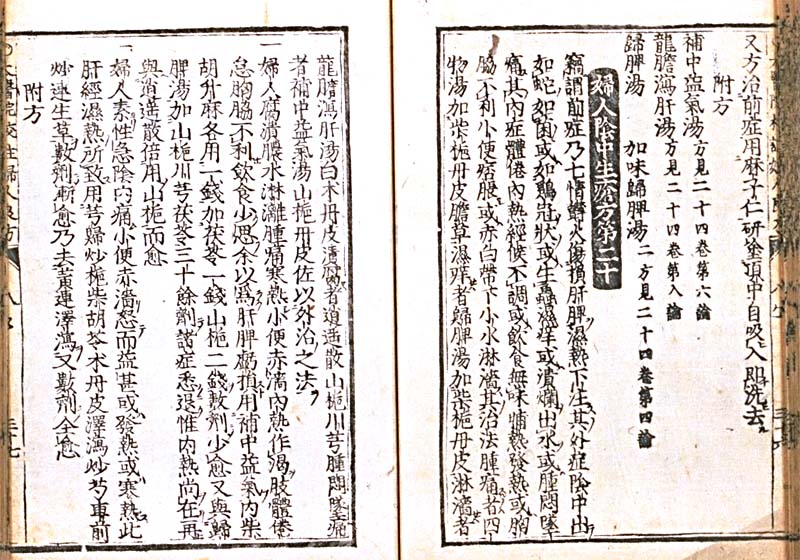 又方治前症用麻子仁研塗頂中自吸入即洗去
附方
補中益氣湯方見二十四卷第六論
龍膽瀉肝湯方見二十四卷第八論
歸脾湯 加味歸脾湯二方見二十四卷第四論
婦人陰中生瘡方第二十
竊謂前症乃七情鬱火傷損肝脾濕熱下注其外症陰中出
如蛇如菌或如鷄冠狀或生蟲濕痒或潰爛出水或腫悶墜
痛其內症體倦內熱經候不調或飲食無味晡熱發熱或胸
脇不利小便痞脹或赤白帶下小水淋瀝其治法腫痛者四
物湯加柴梔丹皮膽草濕痒者歸脾湯加柴梔丹皮淋瀝者
龍膽瀉肝湯白木丹皮潰腐者逍遙散山梔川芎腫悶墜痛
者補中益氣湯山梔丹皮佐以外治之法
一婦人腐潰膿水淋漓腫痛寒熱小便赤澁內熱作渴肢體倦
怠胸脇不利飲食少思余以爲肝脾虧損用補中益氣內柴
胡升麻各用一錢加茯苓一錢山梔二錢數劑少愈又與歸
脾湯加山梔川芎茯苓三十餘劑諸症悉退惟內熱尚在再
與逍遙散倍用山梔而愈
一婦人素性急陰內痛小便赤澁怒而益甚或發熱或寒熱此
肝經濕熱所致用芎歸炒梔柴胡苓朮丹皮澤瀉炒芍車前
炒連生草數劑漸愈乃去黃連澤瀉又數劑全愈
附方